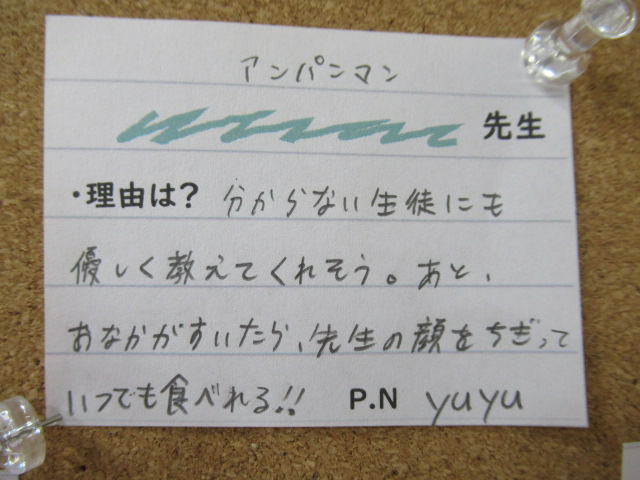 アンパンマン
先生
・理由は? 分からない生徒にも
優しく教えてくれそう。あと、
おなかがすいたら、先生の顔をちぎって
いつでも食べれる!! P.N yuyu